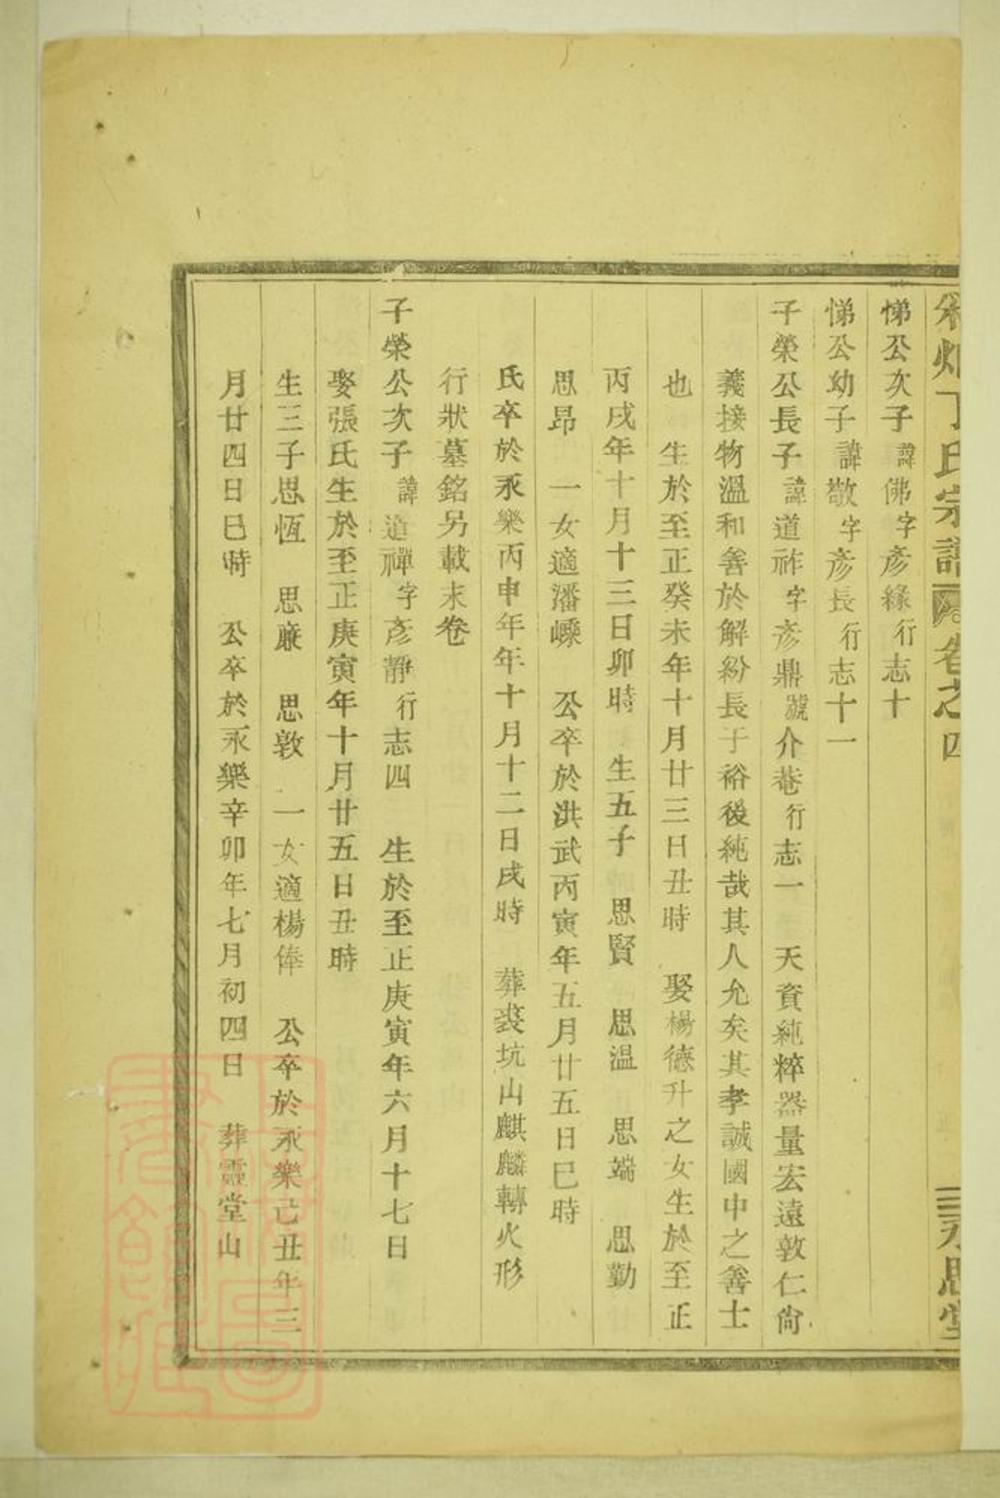 丁氏宗譜 卷之四 三 永思堂
悌公次子諱佛字彥緣行志十
悌公幼子諱敬字彥長行志十一
子榮公長子諱道祚字彥鼎號介菴行志一 天資純粹器量宏遠敦仁尙
義接物溫和善於解紛長于裕後純哉其人允矣其孝誠國中之善士
也 生於至正癸未年十月廿三日丑時 娶楊德升之女生於至正
丙戌年十月十三日卯時 生五子 思賢 思溫 思端 思勤
思昂 一女適潘嵊 公卒於洪武丙寅年五月廿五日巳時
氏卒於永樂丙申年年十月十二日戌時 葬裘坑山麒麟轉火形
行狀墓銘另載末卷
子榮公次子諱道禪字彥靜行志四 生於至正庚寅年六月十七日
娶張氏生於至正庚寅年十月廿五日丑時
生三子思恆 思 思敦 一女適楊俸 公卒於永樂己丑年三
月廿四日巳時 公卒於永樂辛卯年七月初四日 葬靈堂山